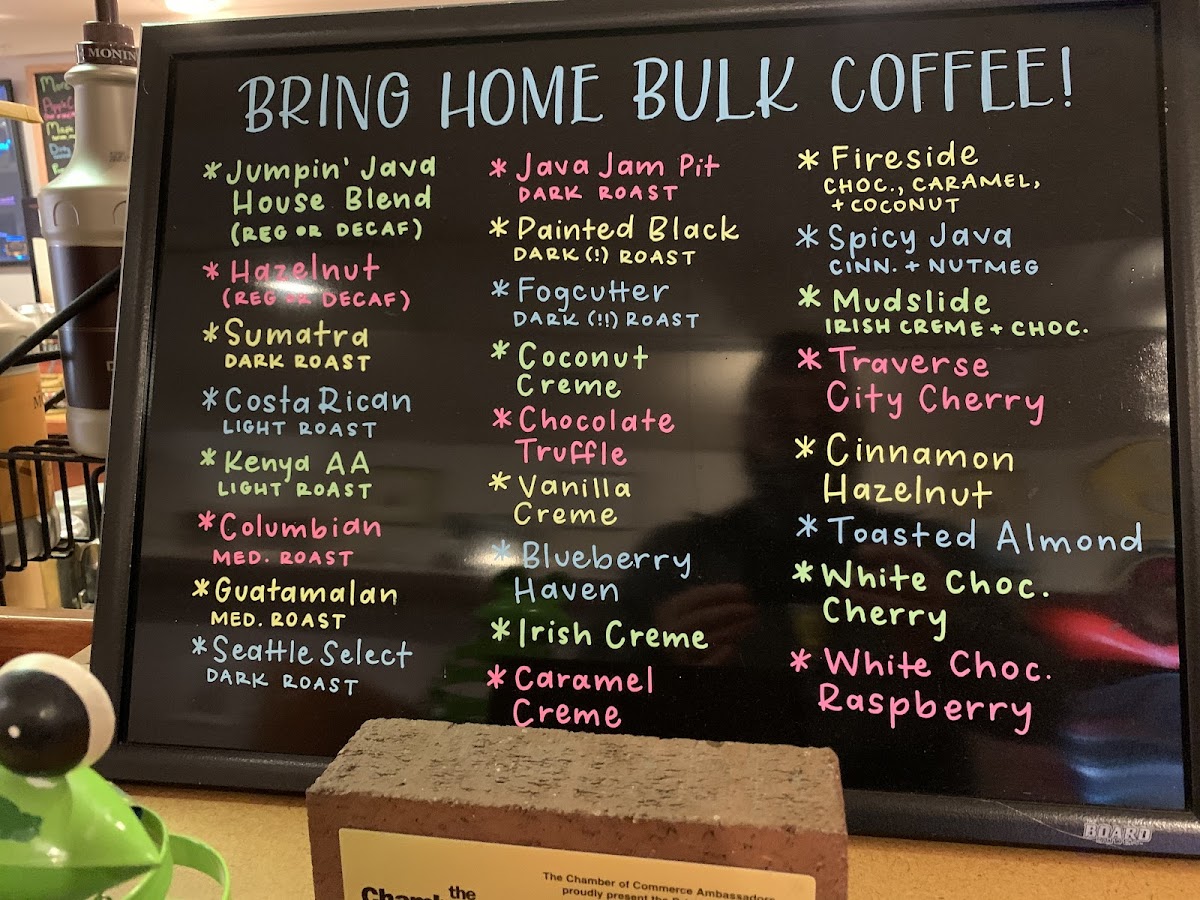 BRING HOME BULK COFFEE!
*Jumpin' Java
House Blend
(REG OR DECAF)
*Hazelnut
(REG OR DECAF)
*Sumatra
DARK ROAST
*Costa Rican
LIGHT ROAST
*Kenya AA
LIGHT ROAST
*Columbian
MED. ROAST
*Guatamalan
MED. ROAST
*Seattle Select
DARK ROAST
*Java Jam Pit
DARK ROAST
*Painted Black
DARK (!) ROAST
*Fogcutter
DARK (!!) ROAST
*Coconut
Creme
*Chocolate
Truffle
*Vanilla
Creme
*Blueberry
Haven
*Irish Creme
*Caramel
Creme
*Fireside
CHOC., CARAMEL,
+ COCONUT
*Spicy Java
CINN. + NUTMEG
*Mudslide
IRISH CREME + CHOC.
*Traverse
City Cherry
*Cinnamon
Hazelnut
*Toasted Almond
*White Choc.
Cherry
*White Choc.
Raspberry
MONIN
BOARD
the
The Chamber of Commerce Ambassadors
proudly present the